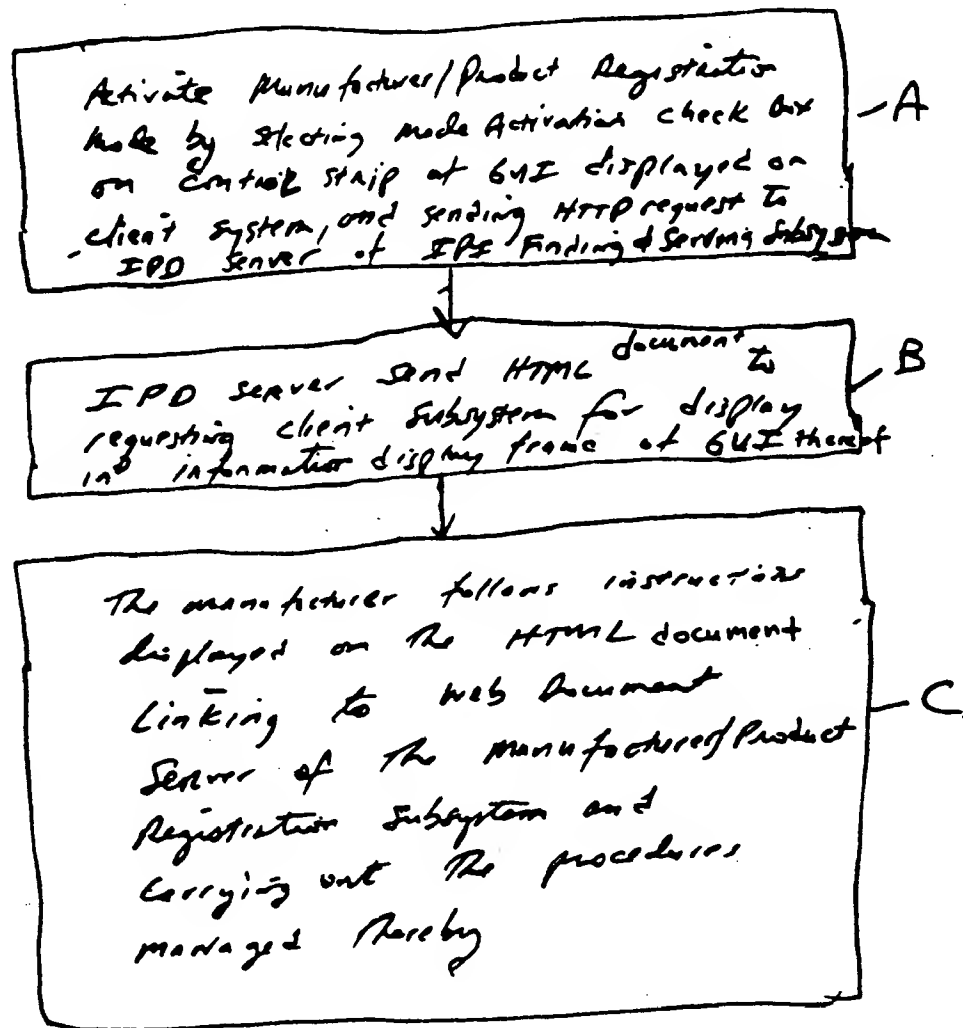 Activate Manufacturer/Product Registration
Mode by selecting mode Activation check box
on control strip of GUI displayed on
client system, and sending HTTP request to
IPD server of IPI Finding & Serving Subsystem
A
IPD server send HTML document to
requesting client subsystem for display
in information display frame of GUI thereof
B
The manufacturer follows instructions
displayed on the HTML document
Linking to Web Document
Server of the Manufacturer/Product
Registration Subsystem and
Carrying out the procedures
managed thereby
C